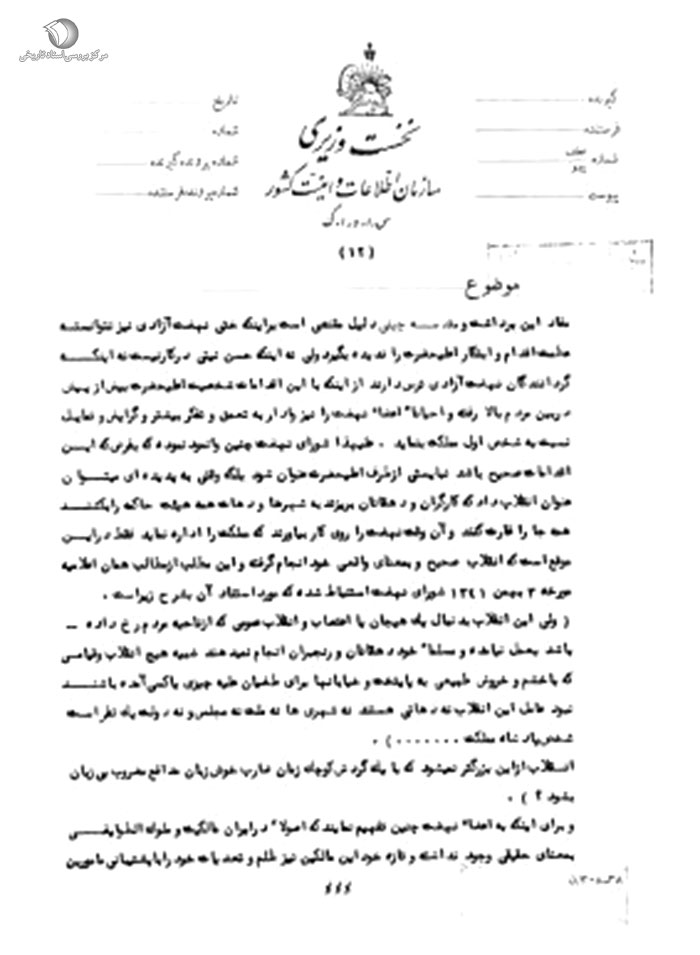 مرکز بررسی اسناد تاریخی
نخست وزیری
سازمان اطلاعات و امنیت کشور
س.ا.و.ا.ک
(۱۲)
گیرنده
فرستنده
شماره
پیوست
تاریخ
شماره
شماره پرونده گیرنده
شماره پرونده فرستنده
موضوع
مفاد این برداشت و مقدمه چینی دلیل مقنعی است براینکه حتی نهضت آزادی نیز نتوانسته
عظمت اقدام و ابتکار اعلیحضرت را ندیده بگیرد ولی نه اینکه حسن نیتی درکارنیست نه اینکه
گردانندگان نهضت آزادی ترس دارند از اینکه با این اقدامات شخصیت اعلیحضرت بیش از پیش
دربین مردم بالا رفته و احیانا" اعضا" نهضت را نیز وادار به تعمق و تفکر بیشتر و گرایش و تمایل
نسبت به شخص اول مملکت بنماید . علیهذا شورای نهضت چنین وانمود نموده که بفرض که ایسن
اقدامات صحیح باشد نبایستی ازطرف اعلیحضرت عنوان شود بلکه وقتی به پدیده ای میتوان
عنوان انقلاب داد که کارگران و دهقانان بریزند به شهرها و دهات همه هیئت حاکمه را بکشند
همه جا را غارت کنند و آن وقت نهضت را روی کار بیاورند که مملکت را اداره نماید فقط دراین
موقع است که انقلاب صحیح و بمعنای واقعی خود انجام گرفته و این مطلب ازمطالب همان اعلامیه
مورخه ۳ بهمن ۱۳۴۱ شورای نهضت استنباط شده که مورد استناد آن بشرح زیر است .
( ولی این انقلاب بدنبال یک هیجان یا اعتصاب و انقلاب عمومی که ازناحیه مردم رخ داده
باشد بعمل نیامده و مسلما" خود دهقانان و رنجبران انجام نمیدهند شبیه هیچ انقلاب وقیامی
که باخشم و خروش طبیعی به پایتخت و خیابانها برای طغیان علیه چیزی یاکسی آمده باشند
نبود عامل این انقلاب نه دهاتی هستند نه شهری ها نه ملت نه مجلس و نه دولت یک نفر است
شخص پادشاه مملکت ........ ) .
انقلاب ازاین بزرگتر نمیشود که با یک گردش کوچک زمان ضارب خوش زبان مدافع مضروب بی زبان
بشود ؟ ) .
و برای اینکه به اعضا" نهضت چنین تفهیم نمایند که اصولا" درایران مالکیت و ملوک الطوایفی
بمعنای حقیقی وجود نداشته و تازه خود این مالکین نیز ظلم و تعدیات خود را با پشتیبانی مامورین